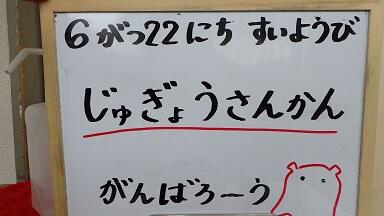 6がつ22にち すいようび
じゅぎょうさんかん
がんばろーう